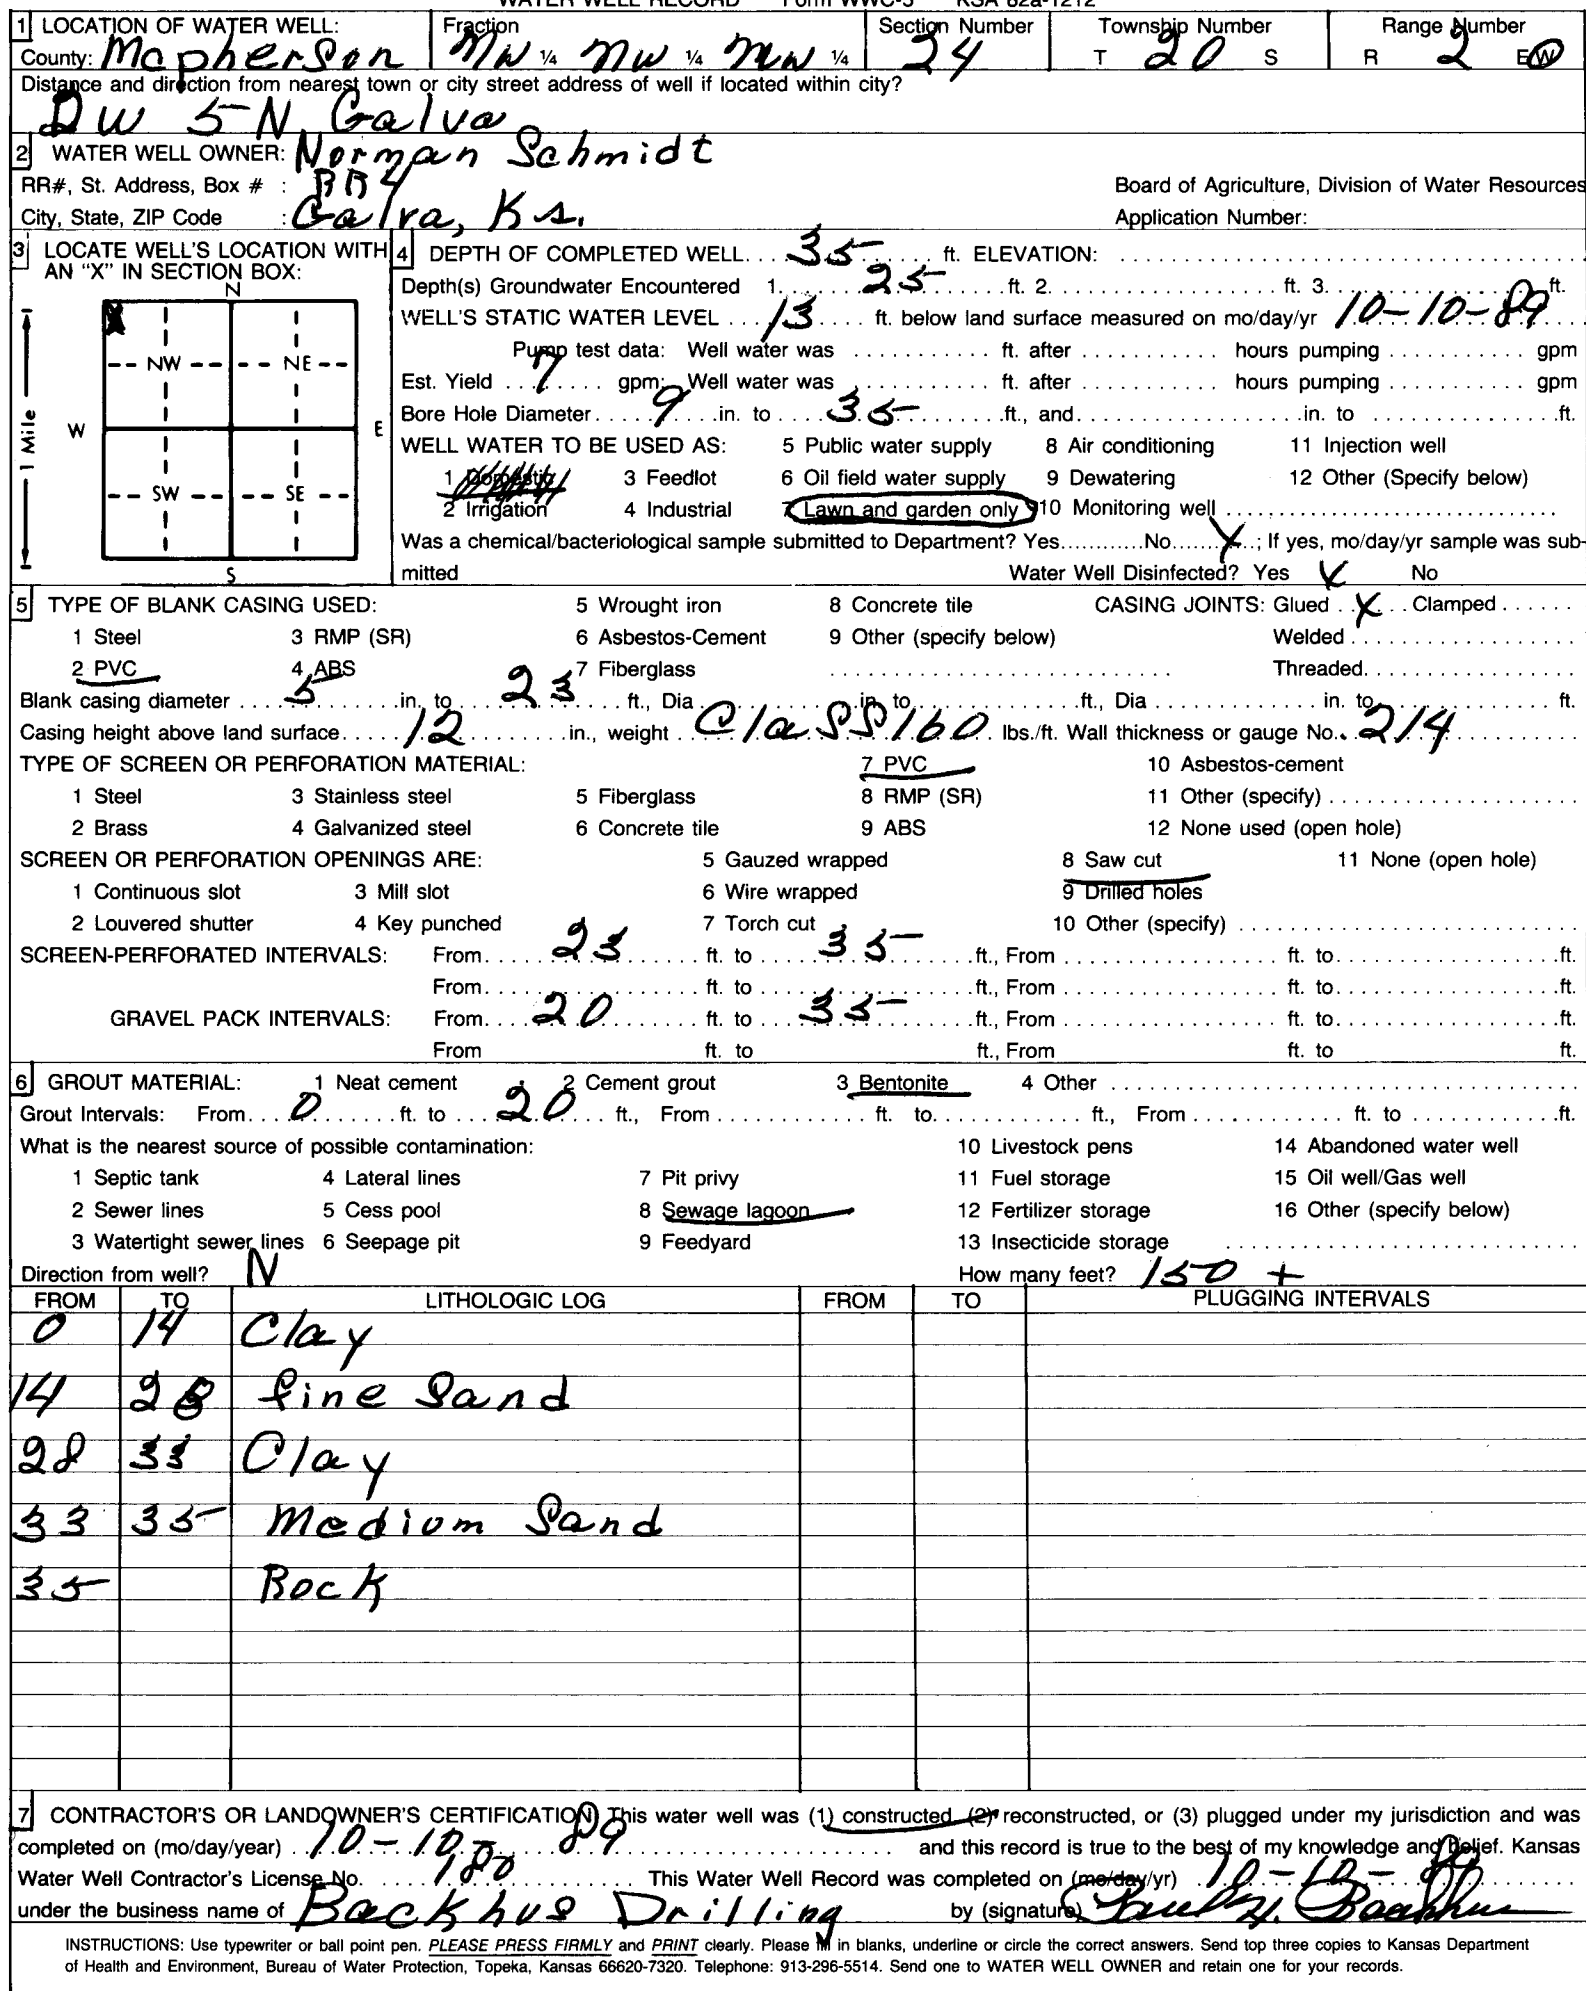 WATER WELL RECORD Form WWC-5 KSA 82a-1212
1 LOCATION OF WATER WELL: Fraction Section Number Township Number Range Number
County: Mcpherson NW ¼ NW ¼ NW ¼ 24 T 20 S R 2 E W
Distance and direction from nearest town or city street address of well if located within city?
5 N Galva
2 WATER WELL OWNER: Norman Schmidt
RR#, St. Address, Box # : RR4 Board of Agriculture, Division of Water Resources
City, State, ZIP Code : Galva, Ks. Application Number:
3 LOCATE WELL'S LOCATION WITH AN "X" IN SECTION BOX:
N
X
NW NE
W E
SW SE
S
1 Mile
4 DEPTH OF COMPLETED WELL 35 ft. ELEVATION:
Depth(s) Groundwater Encountered 1. 25 ft. 2. ft. 3. ft.
WELL'S STATIC WATER LEVEL 13 ft. below land surface measured on mo/day/yr 10-10-89
Pump test data: Well water was ft. after hours pumping gpm
Est. Yield 7 gpm: Well water was ft. after hours pumping gpm
Bore Hole Diameter 9 in. to 35 ft., and in. to ft.
WELL WATER TO BE USED AS: 5 Public water supply 8 Air conditioning 11 Injection well
1 Domestic 3 Feedlot 6 Oil field water supply 9 Dewatering 12 Other (Specify below)
2 Irrigation 4 Industrial 7 Lawn and garden only 10 Monitoring well
Was a chemical/bacteriological sample submitted to Department? Yes No X ; If yes, mo/day/yr sample was sub-
mitted Water Well Disinfected? Yes X No
5 TYPE OF BLANK CASING USED: 5 Wrought iron 8 Concrete tile CASING JOINTS: Glued X Clamped
1 Steel 3 RMP (SR) 6 Asbestos-Cement 9 Other (specify below) Welded
2 PVC 4 ABS 7 Fiberglass Threaded
Blank casing diameter 5 in. to 23 ft., Dia in. to ft., Dia in. to ft.
Casing height above land surface 12 in., weight Class 160 lbs./ft. Wall thickness or gauge No. .214
TYPE OF SCREEN OR PERFORATION MATERIAL: 7 PVC 10 Asbestos-cement
1 Steel 3 Stainless steel 5 Fiberglass 8 RMP (SR) 11 Other (specify)
2 Brass 4 Galvanized steel 6 Concrete tile 9 ABS 12 None used (open hole)
SCREEN OR PERFORATION OPENINGS ARE: 5 Gauzed wrapped 8 Saw cut 11 None (open hole)
1 Continuous slot 3 Mill slot 6 Wire wrapped 9 Drilled holes
2 Louvered shutter 4 Key punched 7 Torch cut 10 Other (specify)
SCREEN-PERFORATED INTERVALS: From 23 ft. to 35 ft., From ft. to ft.
From ft. to ft., From ft. to ft.
GRAVEL PACK INTERVALS: From 20 ft. to 35 ft., From ft. to ft.
From ft. to ft., From ft. to ft.
6 GROUT MATERIAL: 1 Neat cement 2 Cement grout 3 Bentonite 4 Other
Grout Intervals: From 0 ft. to 20 ft., From ft. to ft., From ft. to ft.
What is the nearest source of possible contamination: 10 Livestock pens 14 Abandoned water well
1 Septic tank 4 Lateral lines 7 Pit privy 11 Fuel storage 15 Oil well/Gas well
2 Sewer lines 5 Cess pool 8 Sewage lagoon 12 Fertilizer storage 16 Other (specify below)
3 Watertight sewer lines 6 Seepage pit 9 Feedyard 13 Insecticide storage
Direction from well? N How many feet? 150 +
FROM TO LITHOLOGIC LOG FROM TO PLUGGING INTERVALS
0 14 Clay
14 28 fine Sand
28 33 Clay
33 35 Medium Sand
35 Rock
7 CONTRACTOR'S OR LANDOWNER'S CERTIFICATION: This water well was (1) constructed, (2) reconstructed, or (3) plugged under my jurisdiction and was
completed on (mo/day/year) 10-10-89 and this record is true to the best of my knowledge and belief. Kansas
Water Well Contractor's License No. 180 This Water Well Record was completed on (mo/day/yr) 10-10-89
under the business name of Backhus Drilling by (signature)
INSTRUCTIONS: Use typewriter or ball point pen. PLEASE PRESS FIRMLY and PRINT clearly. Please fill in blanks, underline or circle the correct answers. Send top three copies to Kansas Department
of Health and Environment, Bureau of Water Protection, Topeka, Kansas 66620-7320. Telephone: 913-296-5514. Send one to WATER WELL OWNER and retain one for your records.